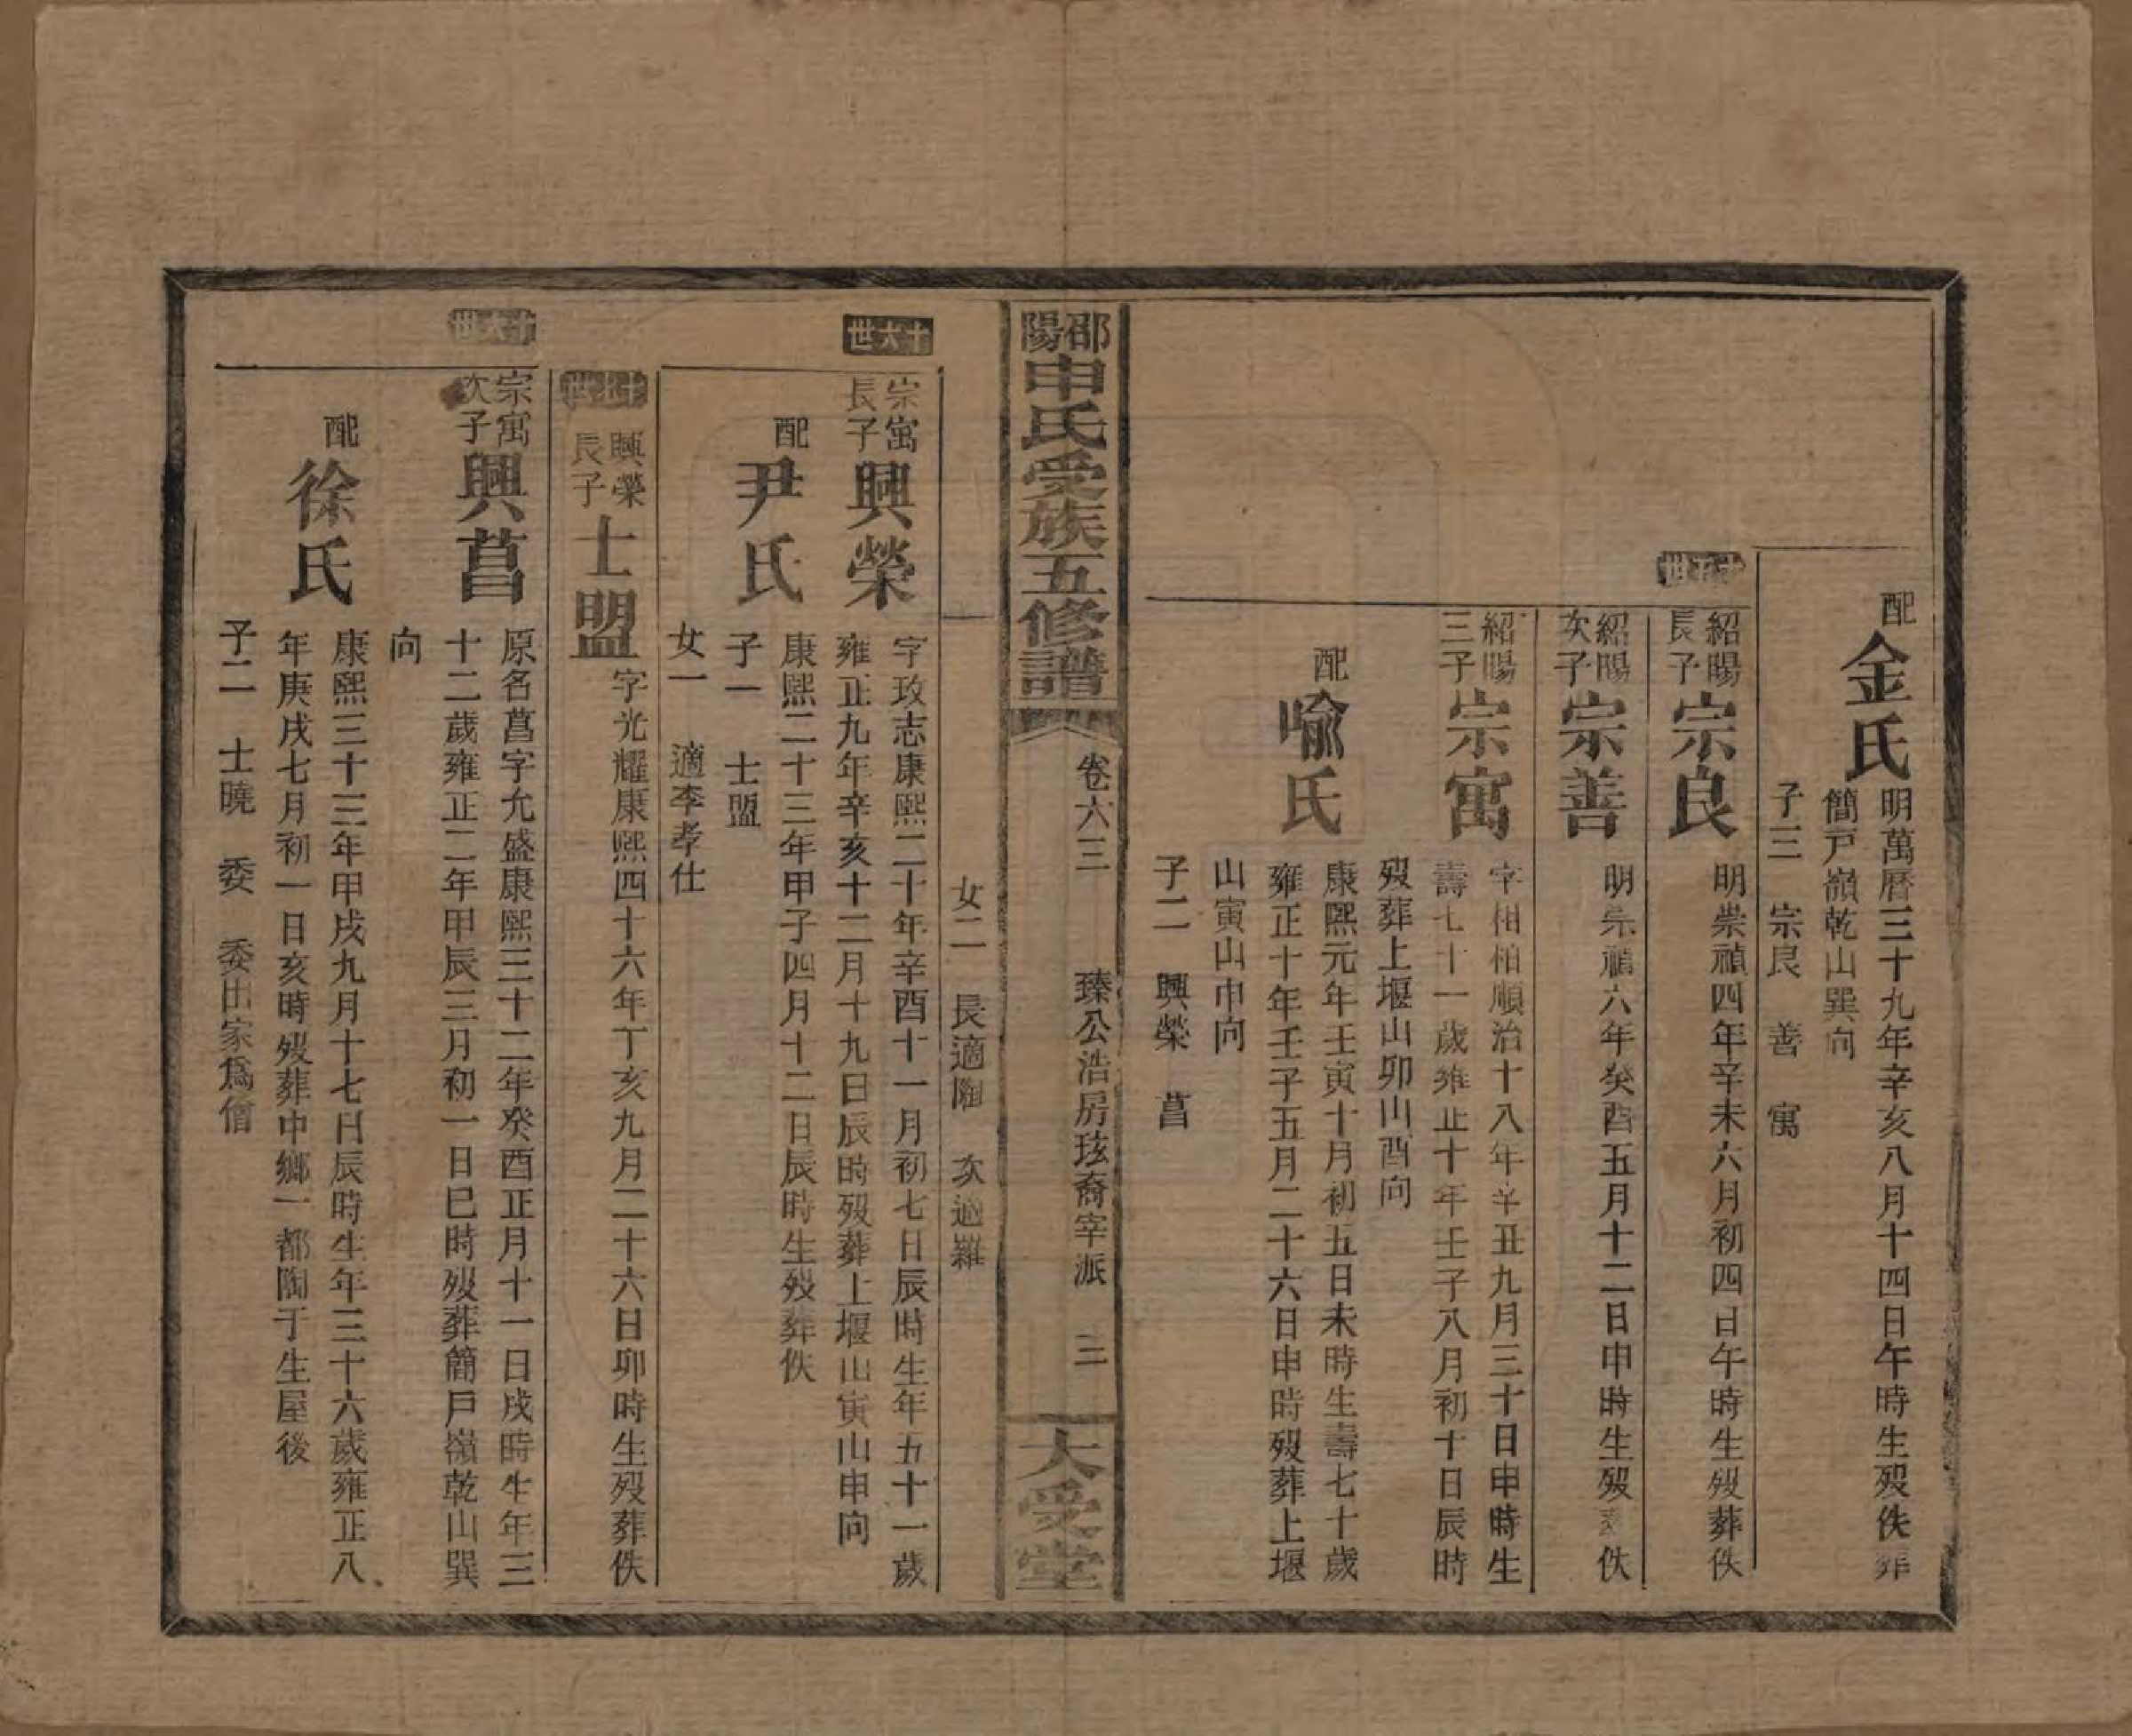 配
金氏
明萬曆三十九年辛亥八月十四日午時生歿佚葬
簡戸嶺乾山巽向
子三　宗良　善　寓
十五世
紹陽長子
宗良
明崇禎四年辛未六月初四日午時生歿葬佚
紹陽次子
宗善
明崇禎六年癸酉五月十二日申時生歿葬佚
紹陽三子
宗寓
字相柏順治十八年辛丑九月三十日申時生
壽七十一歲雍正十年壬子八月初十日辰時
歿葬上堰山卯山酉向
配
喻氏
康熙元年壬寅十月初五日未時生壽七十歲
雍正十年壬子五月二十六日申時歿葬上堰
山寅山申向
子二　興榮　菖
邵陽申氏受族五修譜
卷六三
臻公浩房玹裔宰派　三
大受堂
女二　長適陶　次適羅
十六世
宗寓長子
興榮
字玫志康熙二十年辛酉十一月初七日辰時生年五十一歲
雍正九年辛亥十二月十九日辰時歿葬上堰山寅山申向
配
尹氏
康熙二十三年甲子四月十二日辰時生歿葬佚
子一　士盟
女一　適李孝仕
十七世
興榮長子
士盟
字光耀康熙四十六年丁亥九月二十六日卯時生歿葬佚
十六世
宗寓次子
興菖
原名菖字允盛康熙三十二年癸酉正月十一日戌時生年三
十二歲雍正二年甲辰三月初一日巳時歿葬簡戸嶺乾山巽
向
配
徐氏
康熙三十三年甲戌九月十七日辰時生年三十六歲雍正八
年庚戌七月初一日亥時歿葬中鄉一都陶于生屋後
子二　士曉　委　委出家爲僧